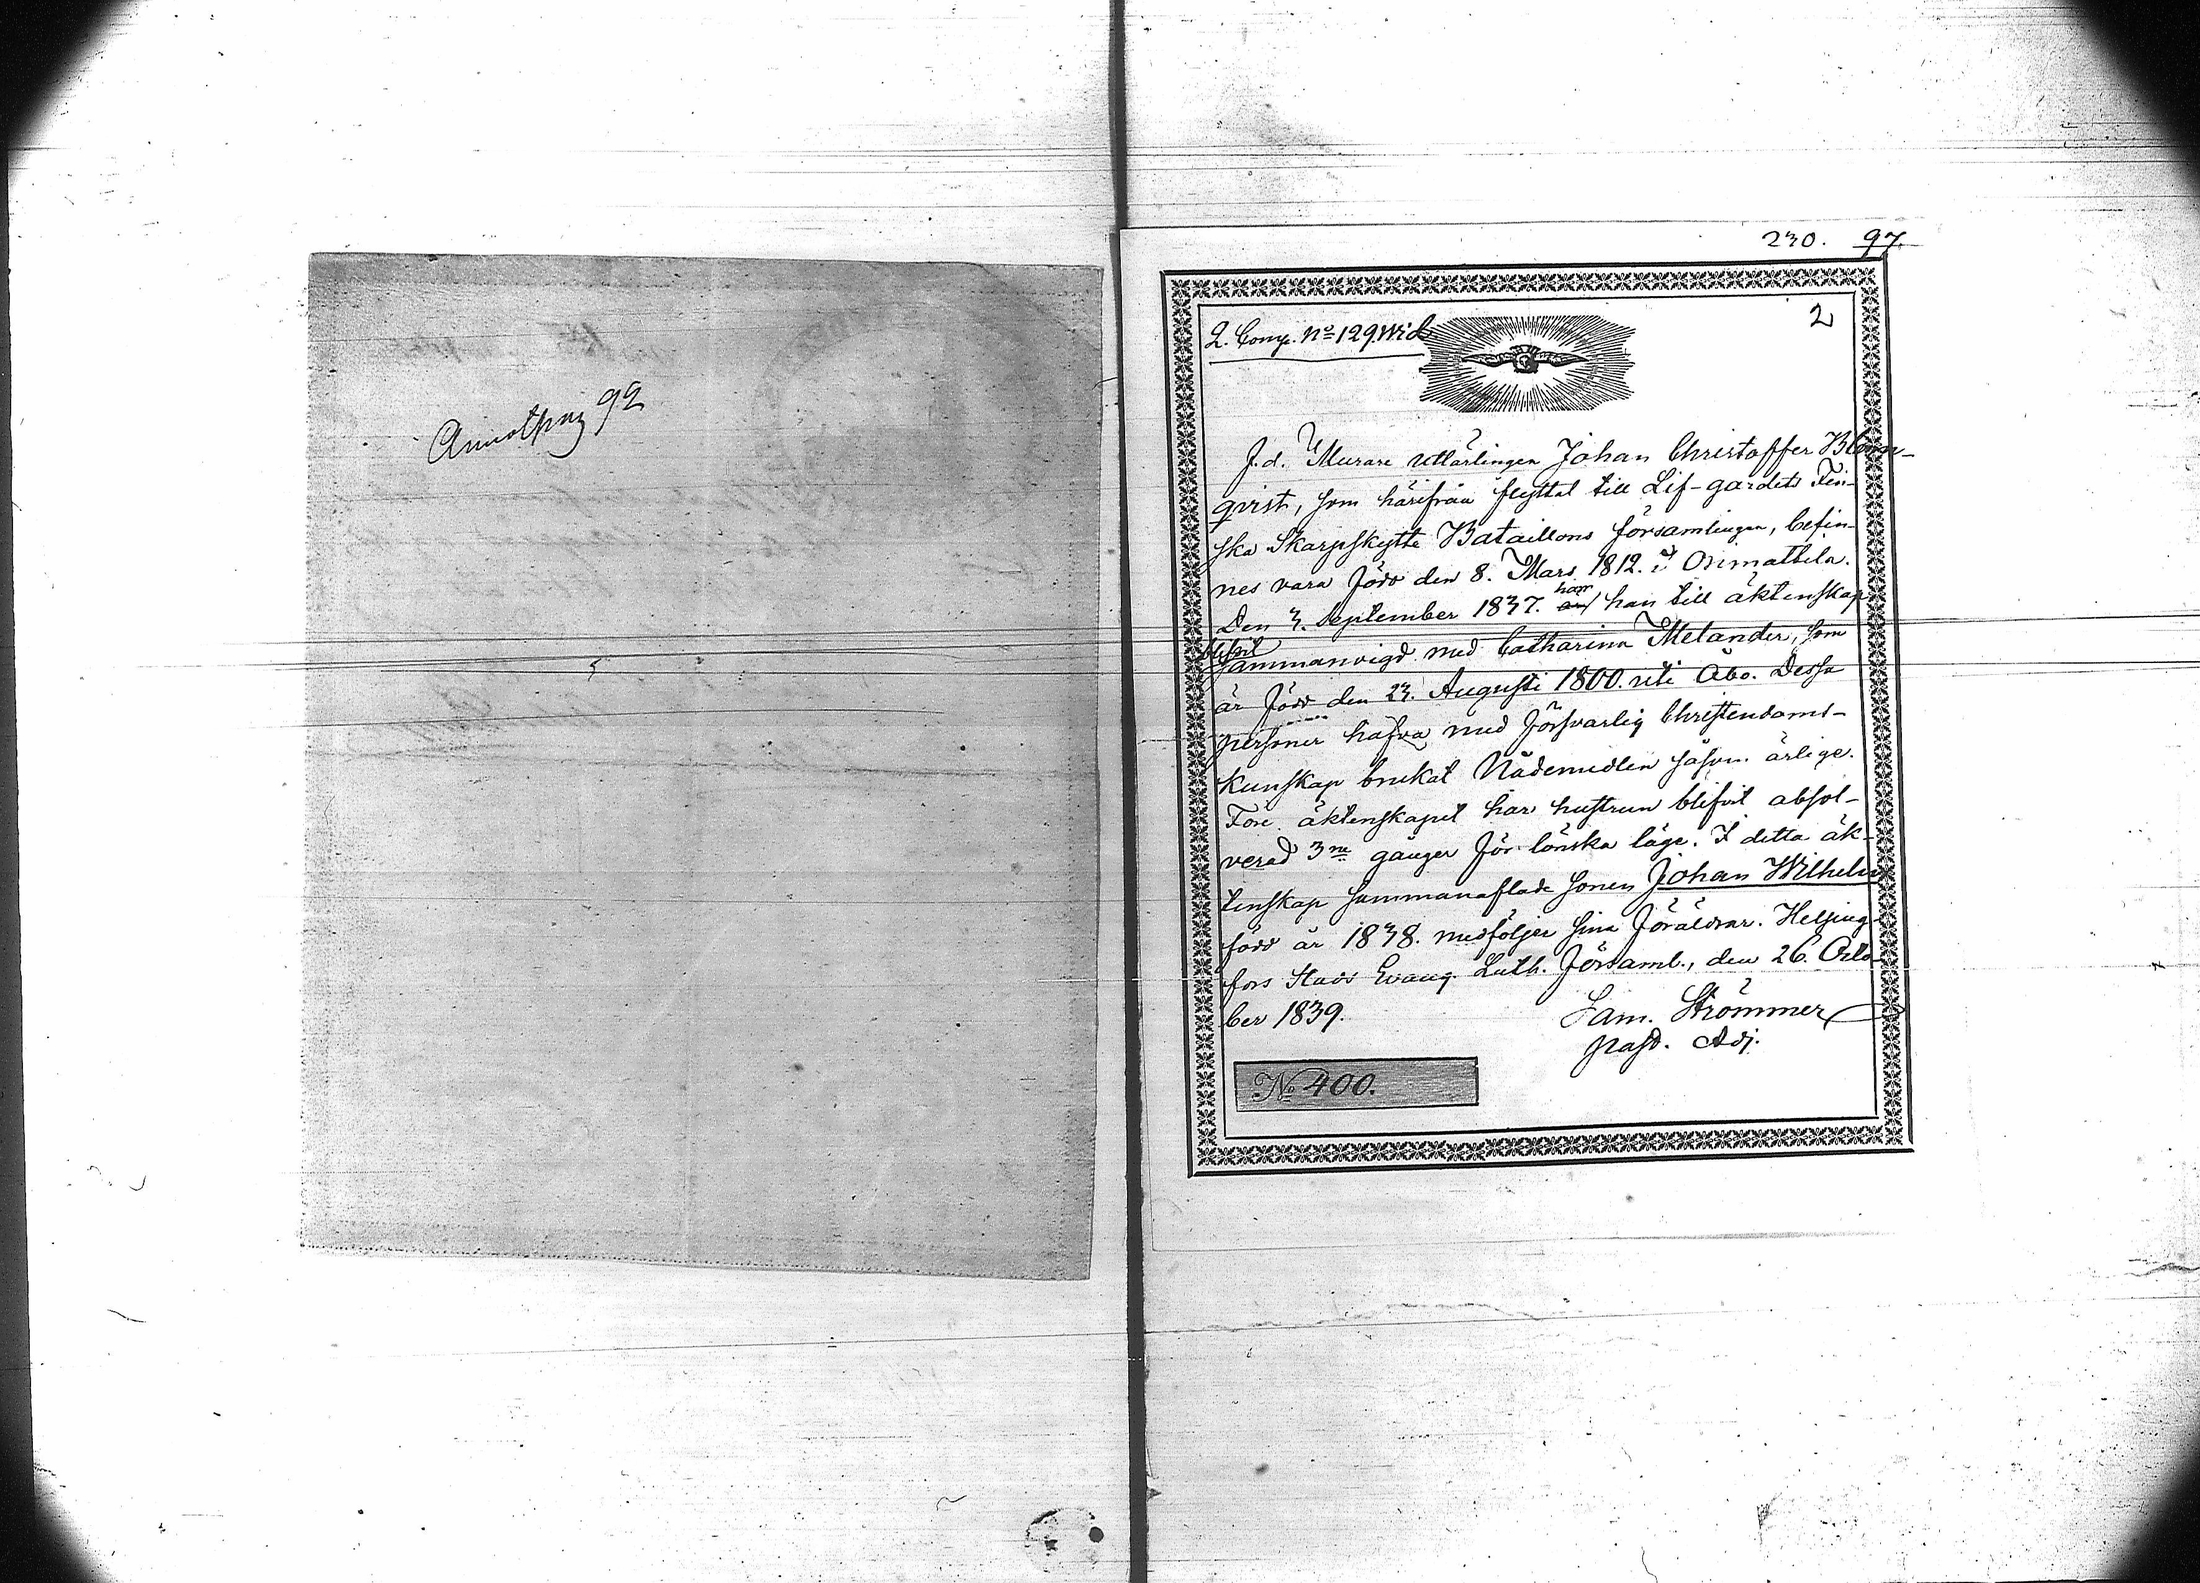 92
230. 97.
2
2. Comp. No 129. Wid
F.d. Murare utlärlingen Johan Christoffer Blom-
qvist, som härifrån flyttat till Lif-gardets Fin-
ska Skarpskytte Bataillons församlingen, befin-
nes vara född den 8. Mars 1812. i Orimattila.
Den 3. September 1837. har han till äktenskap
blifvit
sammanvigd med Catharina Melander, som
är född den 23. Augusti 1800. uti Åbo. Dessa
personer hafva med försvarlig Christendoms-
kunskap brukat Nådemedlen såsom ärlige.
Före äktenskapet har hustrun blifvit absol-
verad 3ne gånger för lönska läge. I detta äk-
tenskap sammanaflade sonen Johan Wilhelm
född år 1838. medföljer sina föräldrar. Helsing-
fors Stads Evang. Luth. Församl., den 26. Octo-
ber 1839.
Sam. Strömmer
past. Adj.
No 400.